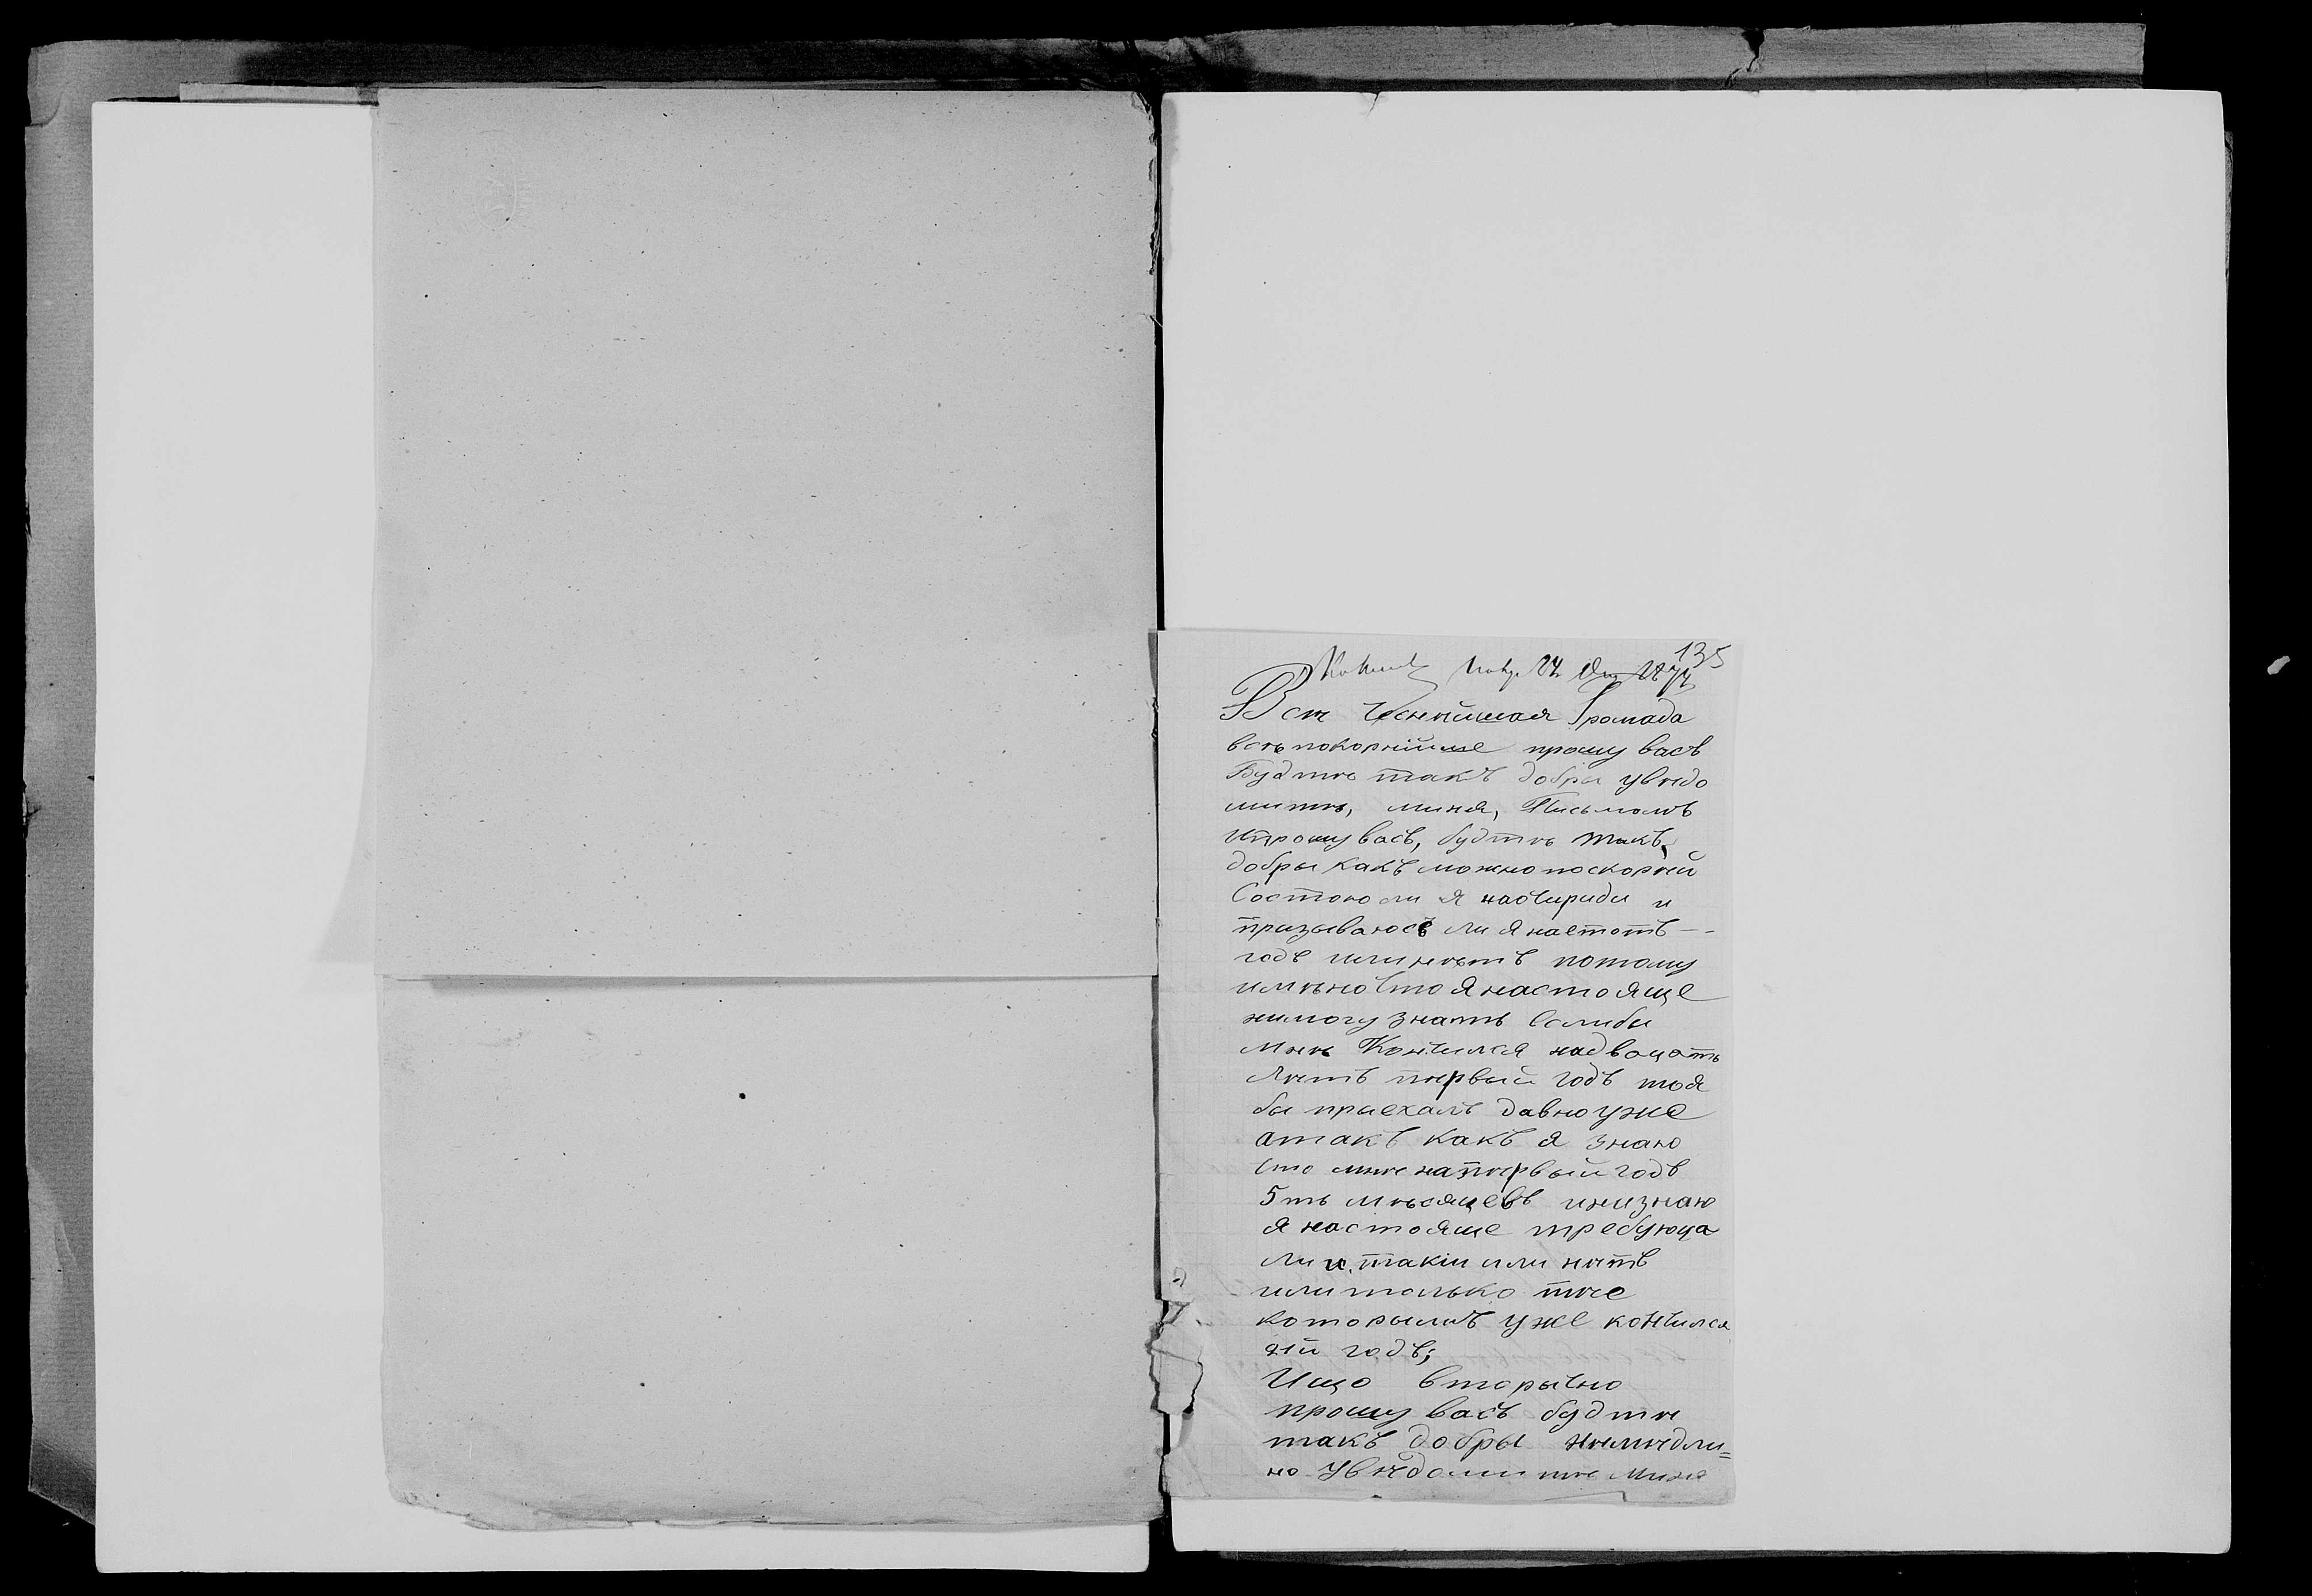 135
Всѣ Чеснѣйшая Громада
всѣ покорнійше прошу васъ
Будтѣ такъ добры увѣдо
митѣ, миня, Письмомъ
ипрошу васъ, будтѣ такъ
добры какъ можно поскорѣй
Состою ли я наочириди и
призываюсь ли я наетотъ —
годъ илинѣтъ потому
имѣно что я настояще
нимогу знать Еслибы
мнѣ Кончился надвоцать
лѣтъ пѣрвый годъ тоя
бы приехалъ давно уже
атакъ какъ я знаю
что мнѣ напѣрвый годъ
5ть мѣсяцевъ инизнаю
я настояще требуюца
ли и такіи или нѣтъ
илитолько тѣе
которымъ уже кончился
21й годъ;
Ищо вторычно
прошу васъ будтѣ
такъ добры нѣмѣдли=
но увѣдомитѣ миня